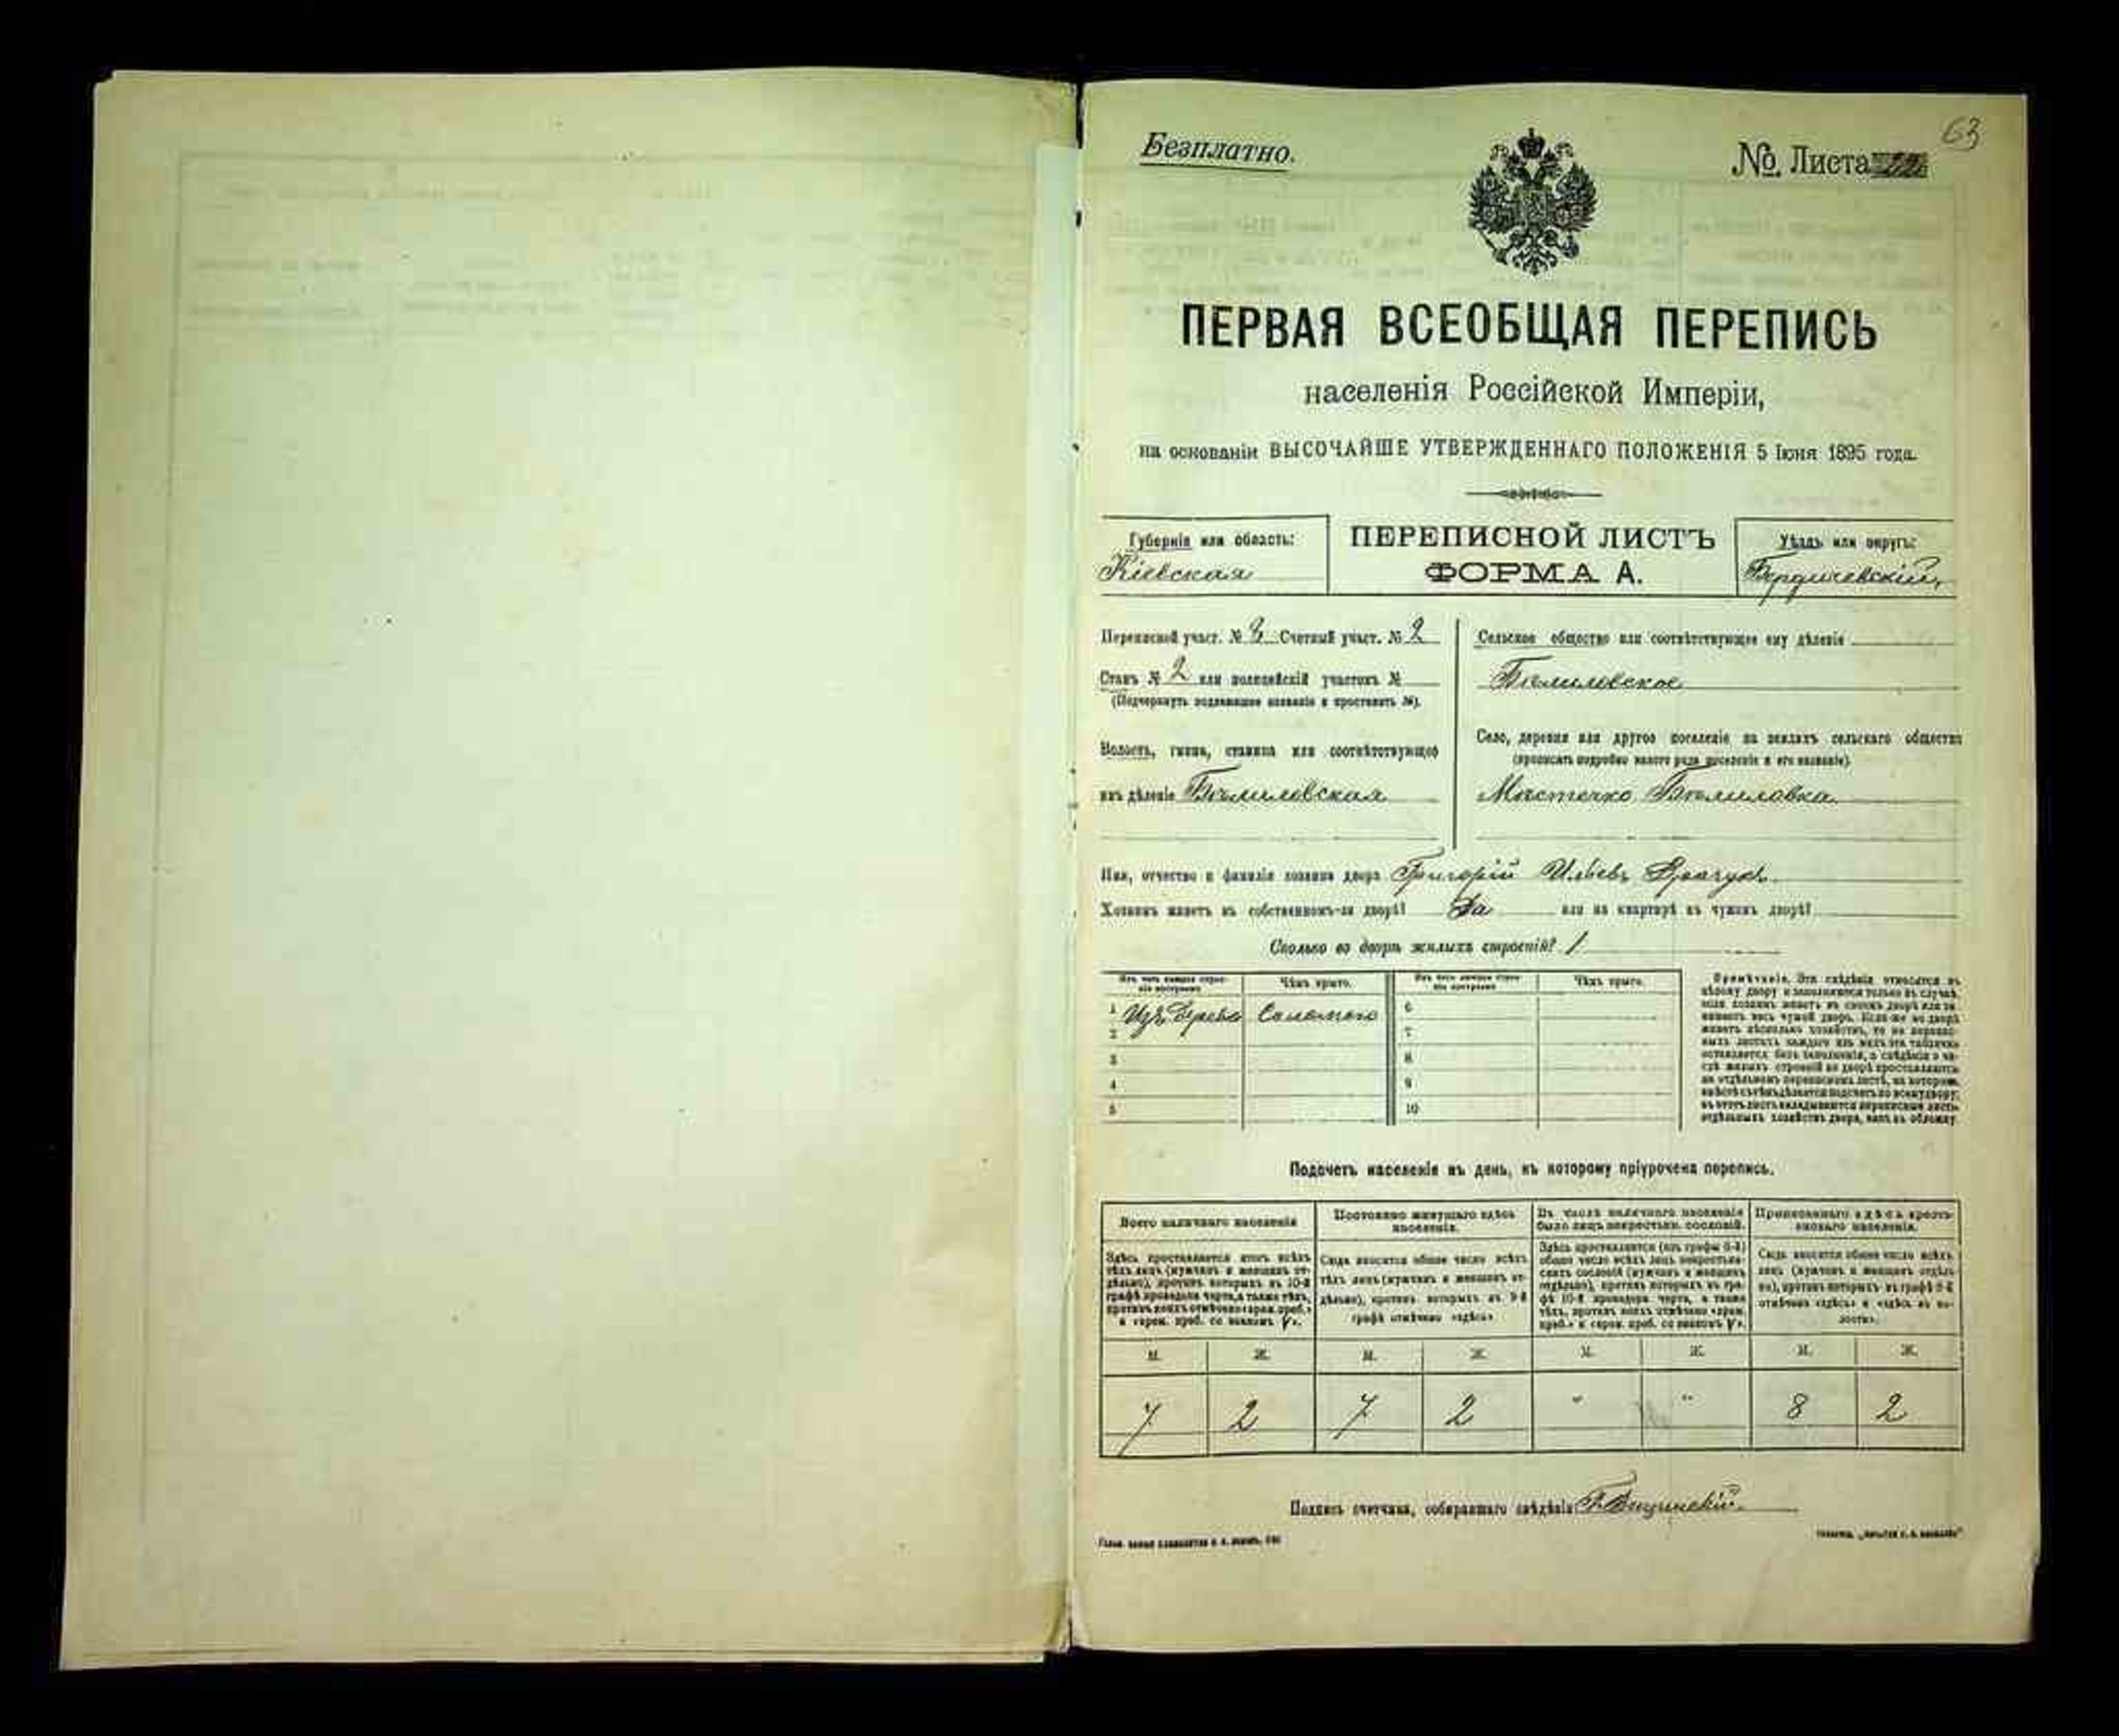 63
Безплатно.
№ Листа 22
ПЕРВАЯ ВСЕОБЩАЯ ПЕРЕПИСЬ
населенія Россійской Имперіи,
на основаніи ВЫСОЧАЙШЕ УТВЕРЖДЕННАГО ПОЛОЖЕНІЯ 5 Іюня 1895 года.
Губернія или область:
Кіевская
ПЕРЕПИСНОЙ ЛИСТЪ
ФОРМА А.
Уѣздъ или округъ:
Бердичевскій
Переписной участ. № Счетный участ. № 2
Станъ № 2 или полицейскій участокъ №
(Подчеркнуть подлежащее названіе и проставить №).
Волость, гмина, станица или соотвѣтствующее
имъ дѣленіе Бѣлиловская
Сельское общество или соотвѣтствующее ему дѣленіе
Бѣлиловское
Село, деревня или другое поселеніе на земляхъ сельскаго общества
(прописать подробно какого рода поселеніе и его названіе)
Мѣстечко Бѣлиловка
Имя, отчество и фамилія хозяина двора Григорій Ильевъ
Хозяинъ живетъ въ собственномъ-ли дворѣ? Да или на квартирѣ въ чужомъ дворѣ?
Сколько во дворѣ жилыхъ строеній? 1
Изъ чего каждое строеніе построено
Чѣмъ крыто.
Изъ чего каждое строеніе построено
Чѣмъ крыто.
1 Изъ дерева Соломою 6
2 7
3 8
4 9
5 10
Примѣчаніе. Эти свѣдѣнія относятся къ
цѣлому двору и заполняются только въ случаѣ,
если хозяинъ живетъ въ своемъ дворѣ или за-
нимаетъ весь чужой дворъ. Если же во дворѣ
живетъ нѣсколько хозяйствъ, то на перепис-
ныхъ листахъ каждаго изъ нихъ эта табличка
оставляется безъ заполненія, а свѣдѣнія о чи-
слѣ жилыхъ строеній во дворѣ проставляются
на отдѣльномъ переписномъ листѣ, на которомъ
вмѣстѣ съ тѣмъ дѣлается подсчетъ по всему двору;
въ этотъ листъ вкладываются переписные листы
отдѣльныхъ хозяйствъ двора, какъ въ обложку
Подсчетъ населенія въ день, къ которому пріурочена перепись.
Всего наличнаго населенія
Здѣсь проставляется итогъ всѣхъ
тѣхъ лицъ (мужчинъ и женщинъ от-
дѣльно), противъ которыхъ въ 10-й
графѣ проведена черта, а также тѣхъ,
противъ коихъ отмѣчено «врем. преб.»
и «врем. преб. со знакомъ V».
Постоянно живущаго здѣсь
населенія.
Сюда вносится общее число всѣхъ
тѣхъ лицъ (мужчинъ и женщинъ от-
дѣльно), противъ которыхъ въ 9-й
графѣ отмѣчено «здѣсь»
Въ числѣ наличнаго населенія
было лицъ некрестьян. сословій.
Здѣсь проставляется (изъ графы 6-й)
общее число всѣхъ лицъ некрестьян-
скихъ сословій (мужчинъ и женщинъ
отдѣльно), противъ которыхъ въ гра-
фѣ 10-й проведена черта, а также
тѣхъ, противъ коихъ отмѣчено «врем.
преб.» и «врем. преб. со знакомъ V».
Приписаннаго здѣсь кресть-
янскаго населенія.
Сюда вносится общее число всѣхъ
лицъ (мужчинъ и женщинъ отдѣль-
но), противъ которыхъ въ графѣ 8-й
отмѣчено «здѣсь» и «здѣсь въ во-
лости».
М. Ж. М. Ж. М. Ж. М. Ж.
7 2 7 2 " " 8 2
Подпись счетчика, собиравшаго свѣдѣнія